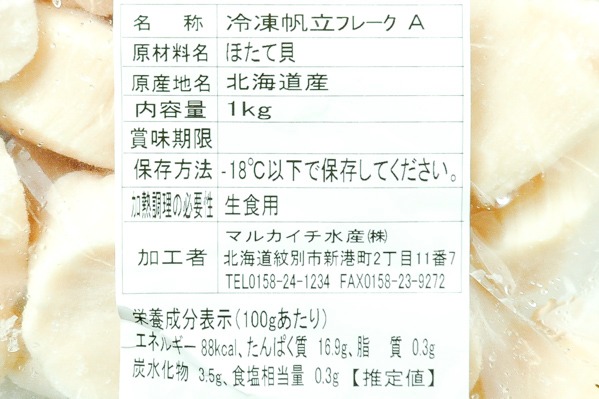 名称 冷凍帆立フレーク A
原材料名 ほたて貝
原産地名 北海道産
内容量 1kg
賞味期限
保存方法 -18℃以下で保存してください。
加熱調理の必要性 生食用
加工者 マルカイチ水産㈱
北海道紋別市新港町2丁目11番7
TEL0158-24-1234 FAX0158-23-9272
栄養成分表示(100gあたり)
エネルギー 88kcal、たんぱく質 16.9g、脂質 0.3g
炭水化物 3.5g、食塩相当量 0.3g【推定値】